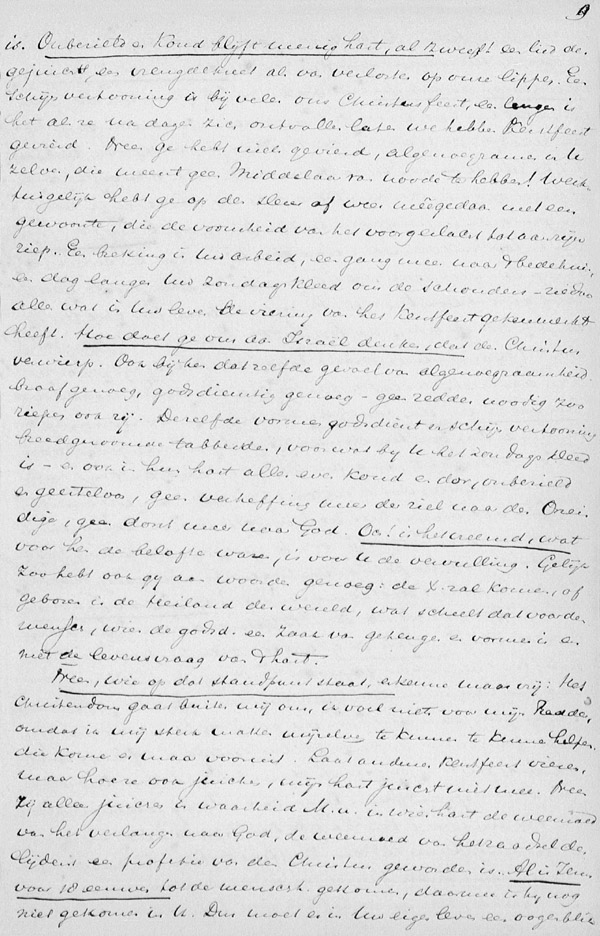 9
is. Onbezield en koud blijft menig hart, al zweeft een lied der
gejuich en vreugdekreet al van verlosten op onze lippen. Een
schijnvertooning is bij velen ons Christusfeest, en langer is
het al ze na dagen zich ontvallen laten we hebben Kerstfeest
gevierd. Neen ge hebt niet gevierd, algenoegzamen in U
zelven, die meent geen Middelaar van noode te hebben! Werk-
tuigelijk hebt ge op den sleur af weer meêgedaan met een
gewoonte, die de vroomheid van het voorgeslacht tot aanzijn
riep. Een beking in Uw arbeid, een gang meer naar 't bedehuis,
een dag langer Uw zondagskleed om de schouders - ziedaar
alles wat in Uw leven de viering van het Kerstfeest gekenmerkt
heeft. Hoe doet ge ons aan Israël denken, dat den Christus
verwierp. Ook bij hen datzelfde gevoel van algenoegzaamheid.
braaf genoeg, godsdienstig genoeg - geen redder noodig zoo
riepen ook zij. Dezelfde vormengodsdienst en schijnvertooning
breedgezoomde tabberden, voor wat bij U het zondagskleed
is - en ook in hun hart alles even koud en dor, onbezield
en geesteloos, geen verheffing meer der ziel naar den Onein-
dige, geen dorst meer naar God. Och! is het vreemd, wat
voor hen de belofte waren, is voor U de vervulling. Gelijk
zoo hebt ook gij aan woorden genoeg: de X. zal komen, of
geboren is de Heiland der wereld, wat scheelt dat voor de
menschen, wier de godsd. een zaak van geheugen en vormen is en
niet de levensvraag van 't hart.
Neen, wie op dat standpunt staat, erkenne maar vrij: Het
Christendom gaat buiten mij om, is voor niets voor mij. Redder,
omdat ik mij sterk make mijzelven te kunnen te kunnen helpen
die kome er maar voor uit. Laat anderen Kerstfeest vieren,
maar hoe ze ook juichen, mijn hart juicht niet mee. Neen
Zij alleen juichen in waarheid M.v. in wier hart de weemoed
van het verlangen naar God, de weemoed van het raadsel des
lijdens een profetie van den Christus geworden is. Al is Jezus
voor 18 eeuwen tot de mensch. gekomen, daarmee is hij nog
niet gekomen in U. Dus moet er in Uw eigen leven een oogenblik